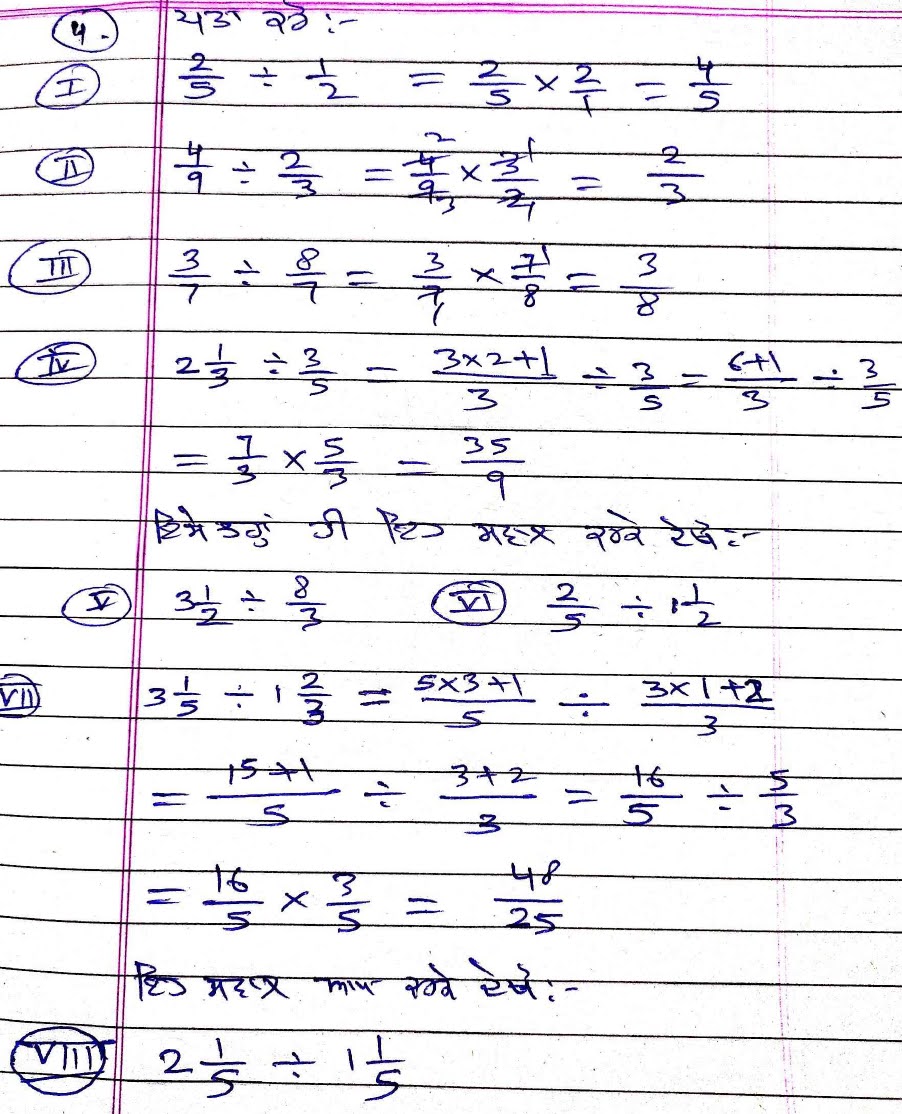 4. ਪਤਾ ਕਰੋ :-
I 2/5 ÷ 1/2 = 2/5 × 2/1 = 4/5
II 4/9 ÷ 2/3 = 4̶²/9̶₃ × 3̶¹/2̶₁ = 2/3
III 3/7 ÷ 8/7 = 3/7̶₁ × 7̶¹/8 = 3/8
IV 2 1/3 ÷ 3/5 = (3×2+1)/3 ÷ 3/5 = (6+1)/3 ÷ 3/5
= 7/3 × 5/3 = 35/9
ਇਸੇ ਤਰ੍ਹਾਂ ਹੀ ਇਹ ਸਵਾਲ ਕਰਕੇ ਦੇਖੋ :-
V 3 1/2 ÷ 8/3 VI 2/5 ÷ 1 1/2
VII 3 1/5 ÷ 1 2/3 = (5×3+1)/5 ÷ (3×1+2)/3
= (15+1)/5 ÷ (3+2)/3 = 16/5 ÷ 5/3
= 16/5 × 3/5 = 48/25
ਇਹ ਸਵਾਲ ਆਪ ਕਰਕੇ ਦੇਖੋ :-
VIII 2 1/5 ÷ 1 1/5